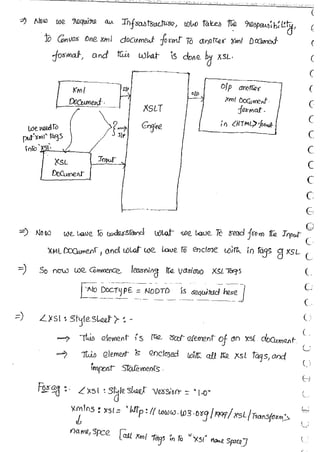 =) Now we require an Infrastructure, who takes the responsibility,
to Convas one xml document formt to another xml Document
format, and this what is done by XSL.
Xml
Document.
I/p
we need to
put "xml" tags
into "xsl"
XSL
Document
Input
I/p
XSLT
Engine
o/p
o/p another
xml Document
format.
in <HTML> format
=) Now we have to understand what we have to read from the Input
XML Document, and what we have to enclose with in tags of XSL.
=) So now we Commence learning the various XSL Tags
"No DOCTYPE = NO DTD is required here"
=) <xsl : Style Sheet> : -
→ This element is the root element of an xsl document.
→ This element is enclosed with all the xsl Tags, and
import Statements.
For eg :- <xsl : Style Sheet Version = "1.0"
xmlns : xsl = "http : // www.w3.org / 1999 / xsl / Transform">
name, space [all xml Tags in to "xsl" name space]